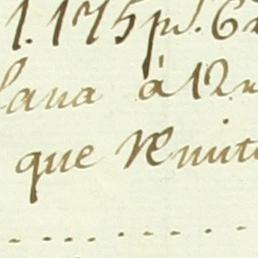 1.175 ps. 6
lana à 12 r
que remite